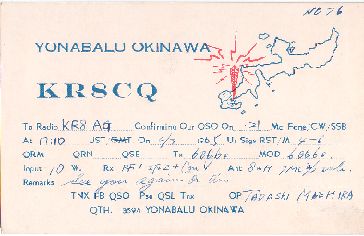 NO 76
YONABALU OKINAWA
KR8CQ
To Radio KR8 AG Confirming Our QSO On 21 Mc Fone/CW/SSB
At 17:10 JST GMT On 196 Ur Sigs RST/M
QRM QRN QSB Tx 6060 MOD 6060
Input 10 W. Rx Ant
Remarks See you again
TNX FB QSO Pse QSL Tnx OP TADASHI
QTH. 359A YONABALU OKINAWA